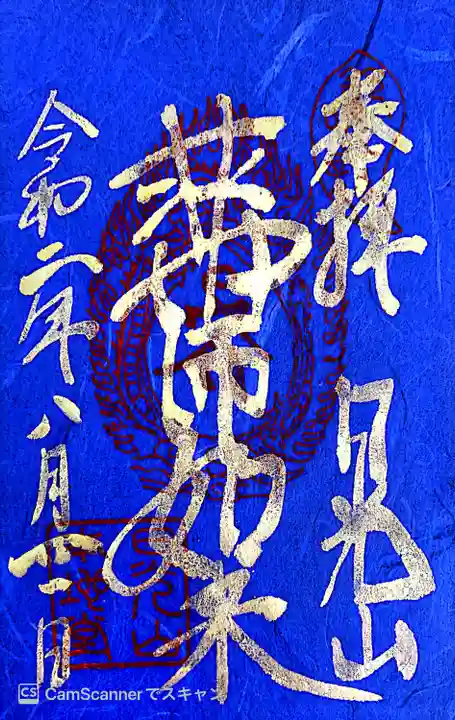 奉拝 日光山
薬師如来
令和二年八月十一日
CS CamScannerでスキャン